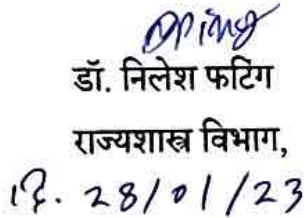 डॉ. निलेश फटिंग
राज्यशास्त्र विभाग,
दि. 28/01/23